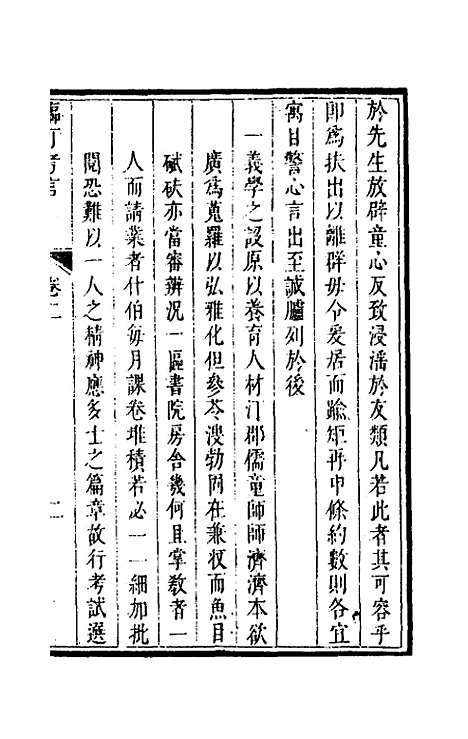 於先生放辟童心反致浸滛於友類凡若此者其可容乎
即為扶出以離群毋令爰居而踰矩再申條約數則各宜
寓目警心言出至誠臚列於後
一義學之設原以養育人材汀郡儒童師師濟濟本欲
廣為蒐羅以弘雅化但參苓溲勃固在兼收而魚目
碔砆亦當審辨况一區書院房舍幾何且掌教者一
人而請業者什伯每月課卷堆積若必一一細加批
閱恐難以一人之精神應多士之篇章故行考試選
臨汀考言
卷二
二